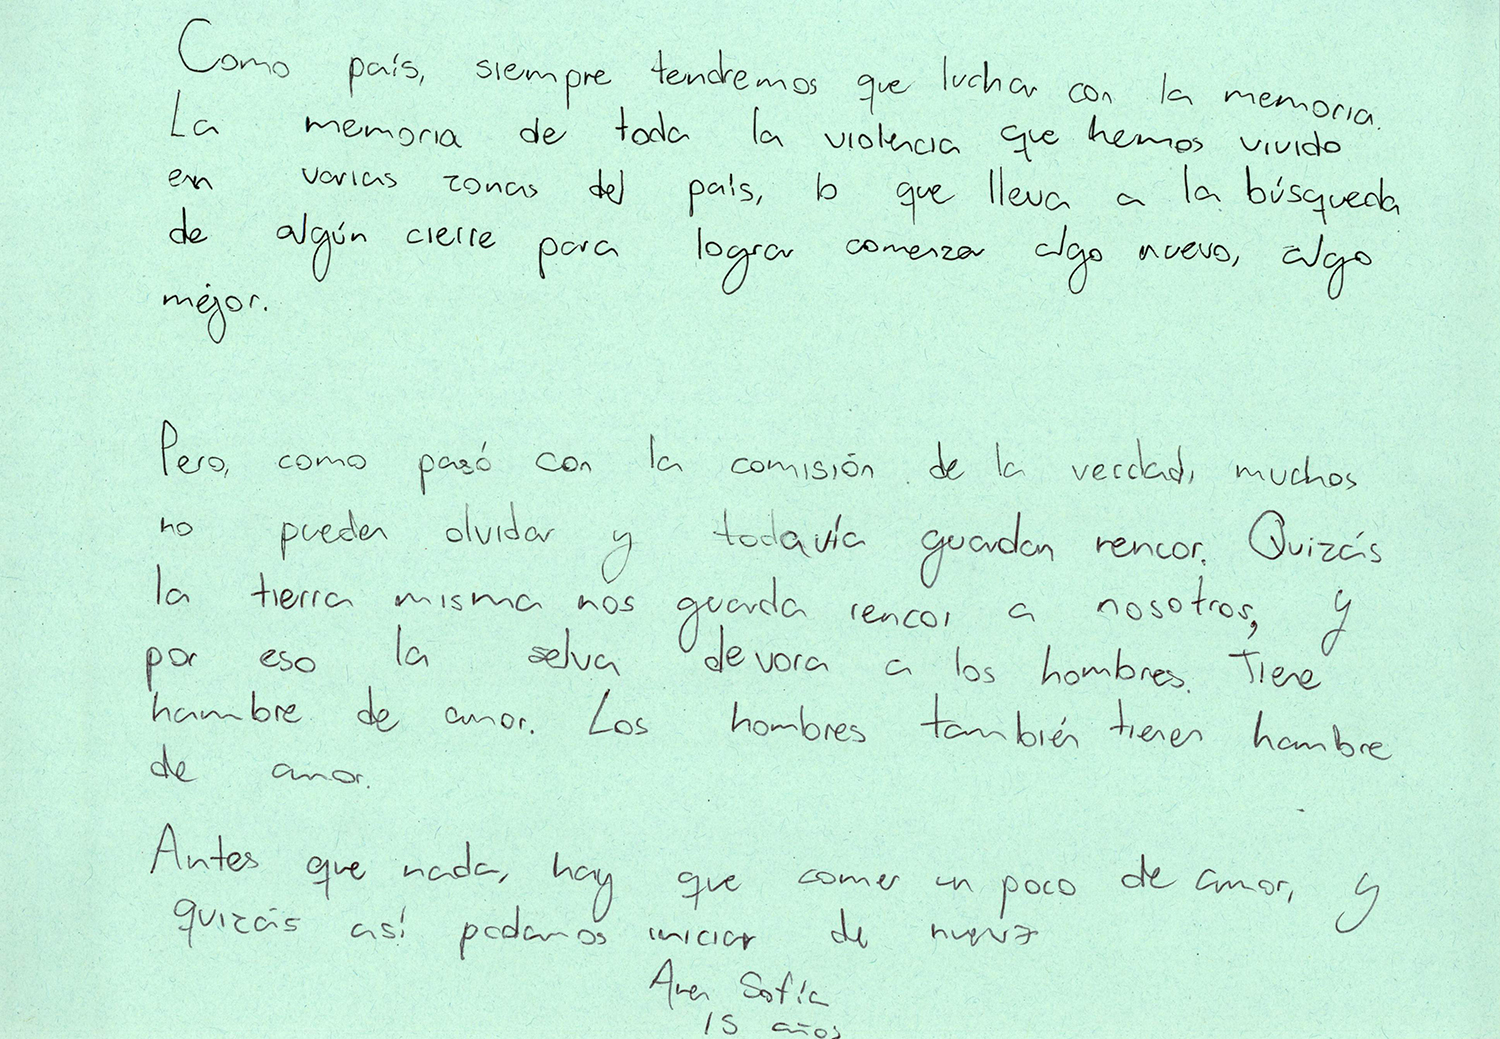 Como país, siempre tendremos que luchar con la memoria.
La memoria de toda la violencia que hemos vivido
en varias zonas del país, lo que lleva a la búsqueda
de algún cierre para lograr comenzar algo nuevo, algo
mejor.
Pero, como pasó con la comisión de la verdad, muchos
no pueden olvidar y todavía guardan rencor. Quizás
la tierra misma nos guarda rencor a nosotros, y
por eso la selva devora a los hombres. Tiene
hambre de amor. Los hombres también tienen hambre
de amor.
Antes que nada, hay que comer un poco de amor, y
quizás así podamos iniciar de nuevo
Ana Sofía
15 años